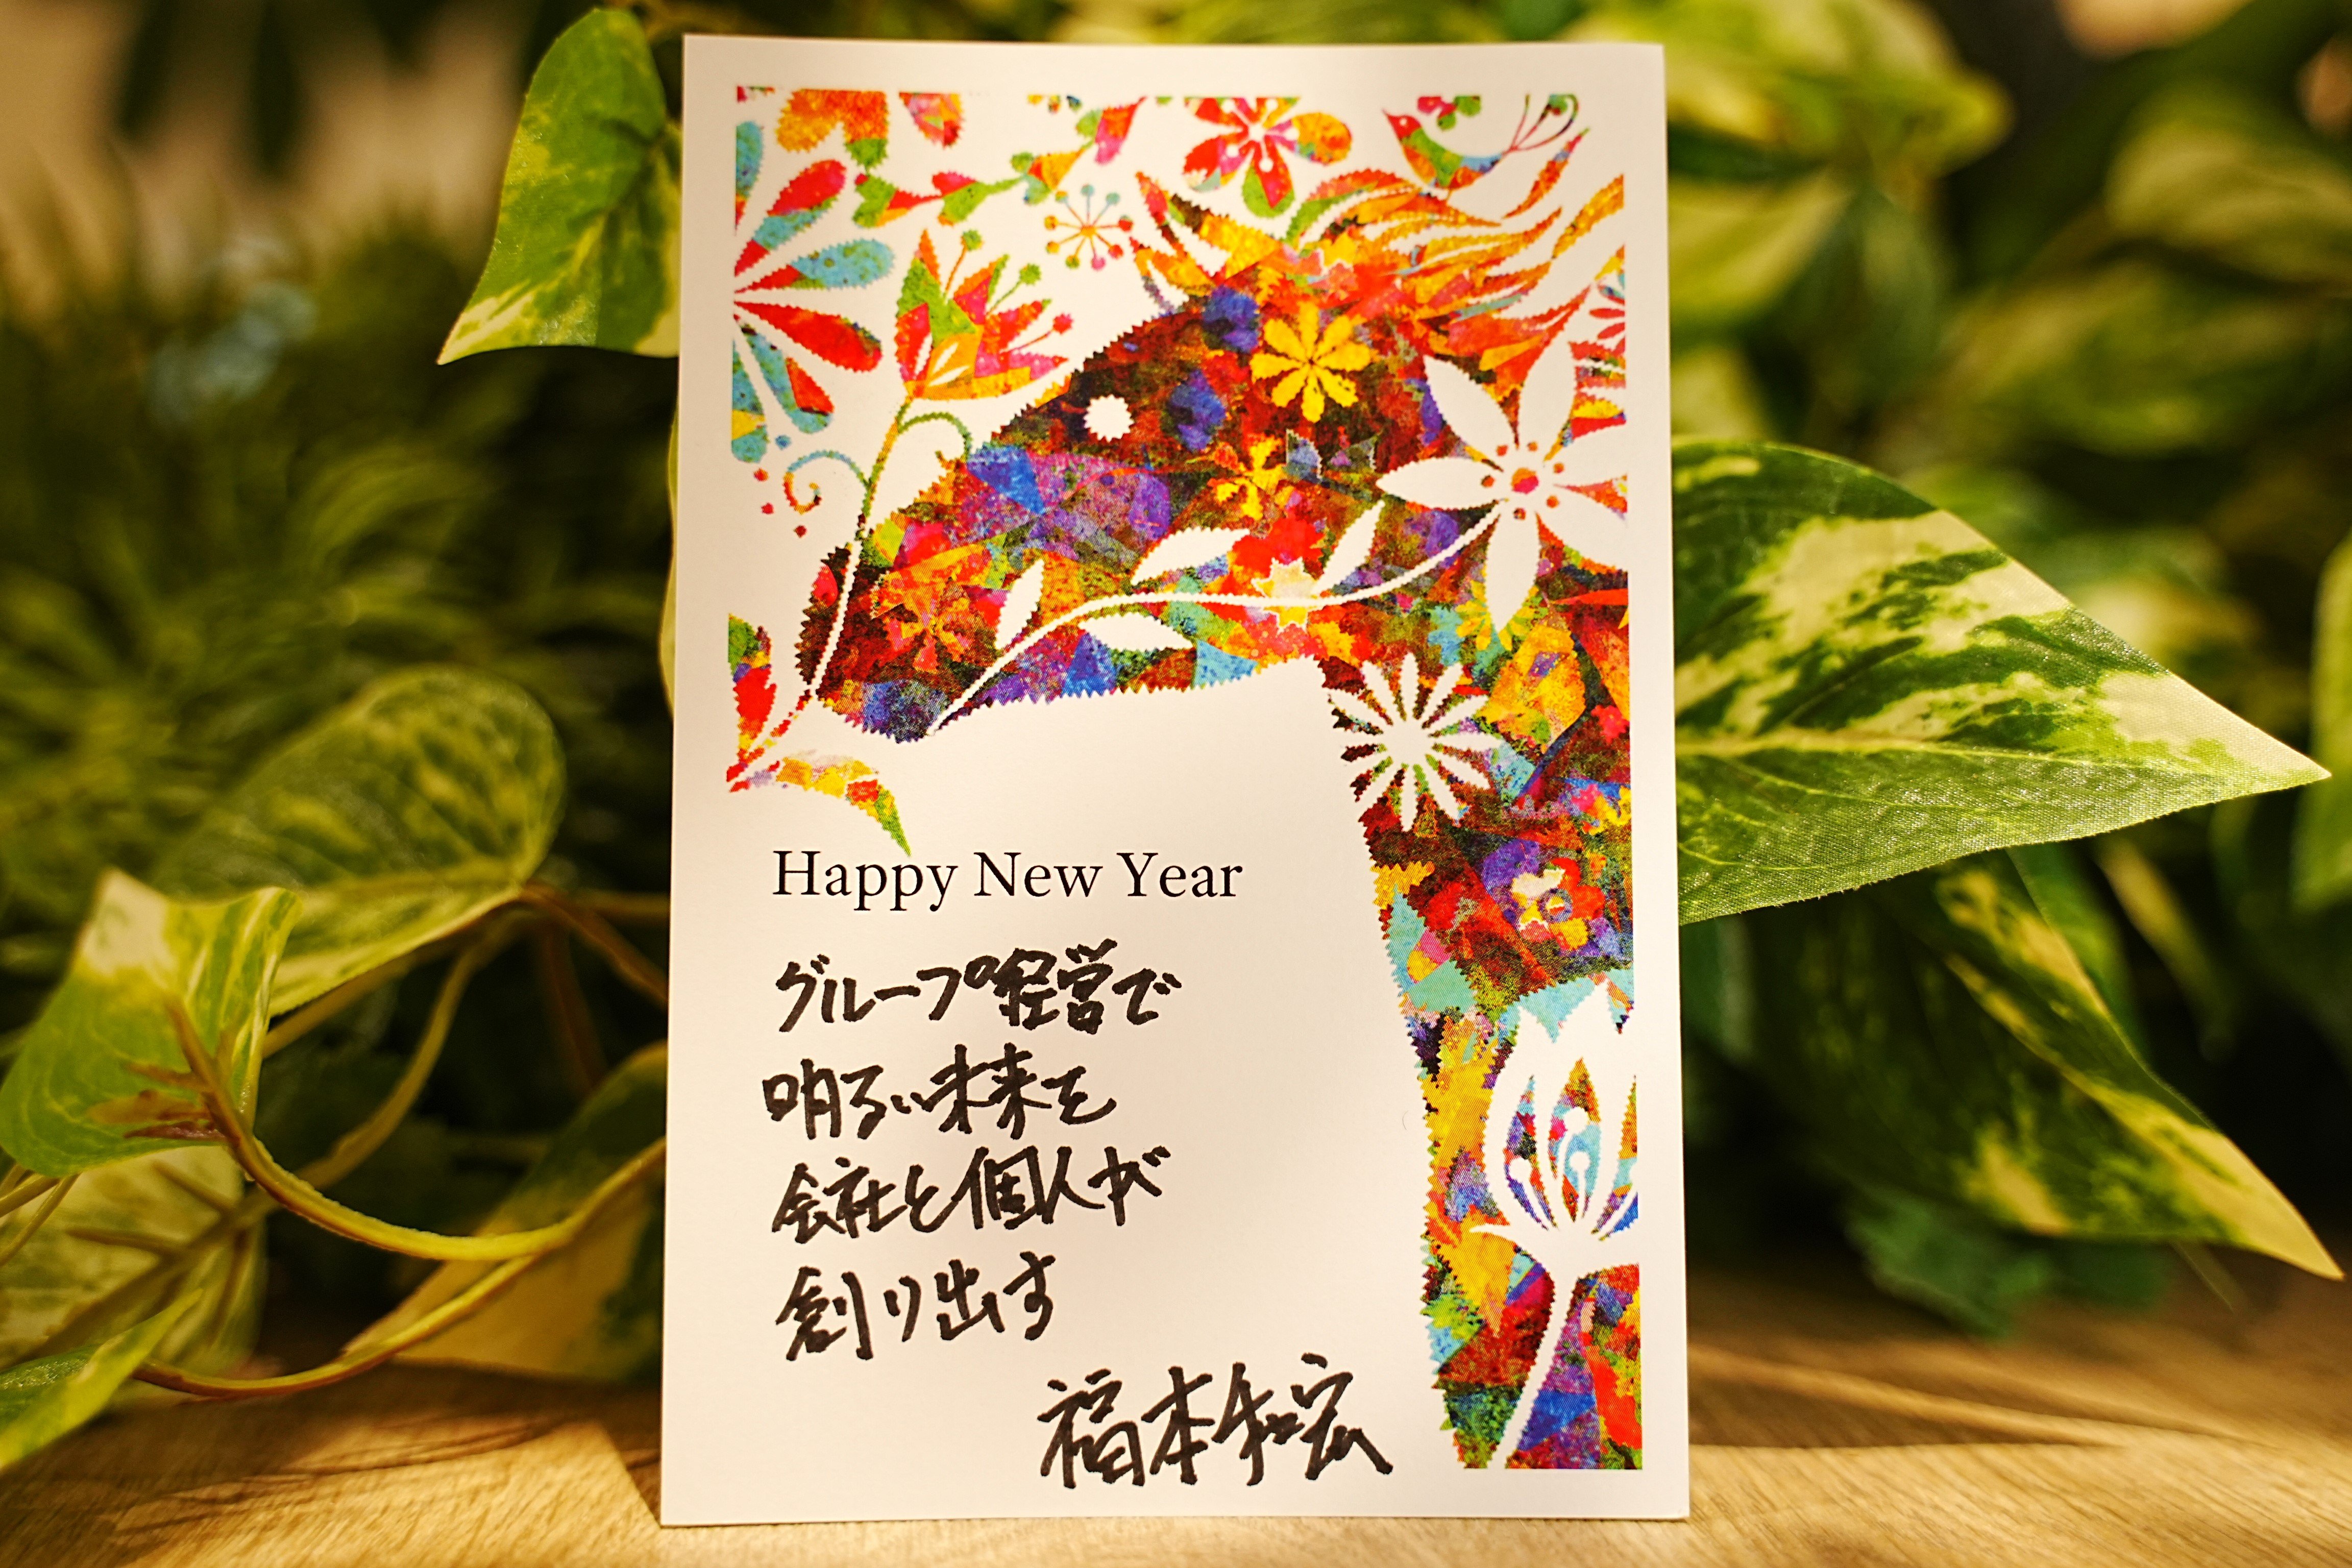 Happy New Year
グループ経営で
明るい未来を
会社と個人が
創り出す
福本和宏